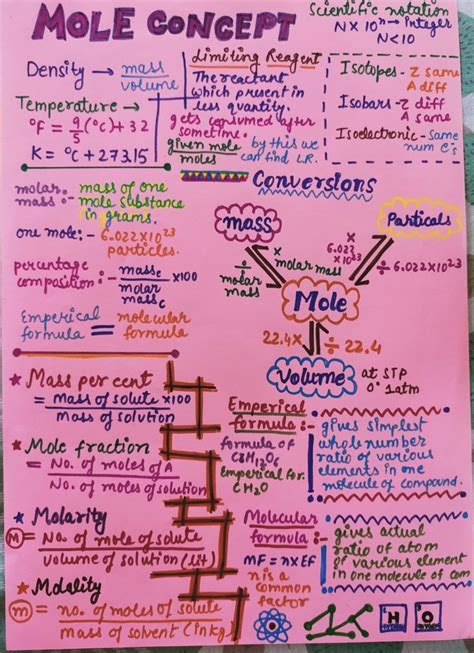 MOLE CONCEPT
Scientific notation
N X 10ⁿ → Integer
N<10
Density → mass
volume
Temperature →
°F = 9/5 (°C) + 32
K = °C + 273.15
Limiting Reagent
The reactant
which present in
less quantity.
gets consumed after
sometime.
given mole
moles
by this we
can find L.R.
Isotopes - Z same
A diff
Isobars - Z diff
A same
Isoelectronic - same
num e⁻s
molar mass :- mass of one
mole substance
in grams.
one mole :- 6.022x10²³
particles.
percentage
composition :- massc x100
molar
massc
Emperical
formula = molecular
formula
Conversions
mass
Particals
÷
molar
mass
x
molar mass
x
6.022
x10²³
÷ 6.022x10²³
Mole
22.4x
÷ 22.4
Volume
at STP
0° 1atm
★ Mass per cent
= Mass of solute x100
Mass of solution
★ Mole fraction
= No. of moles of A
No. of moles of solution
★ Molarity
M = No. of mole of solute
volume of solution (lit)
★ Molality
m = no. of moles of solute
mass of solvent (in kg)
Emperical
formula :-
formula of
C₆H₁₂O₆
emperical for
CH₂O
gives simplest
whole number
ratio of various
elements in one
molecule of compound.
Molecular
formula :-
MF = n x EF
n is a
common
factor
gives actual
ratio of atom
of various element
in one molecule of com
H
O